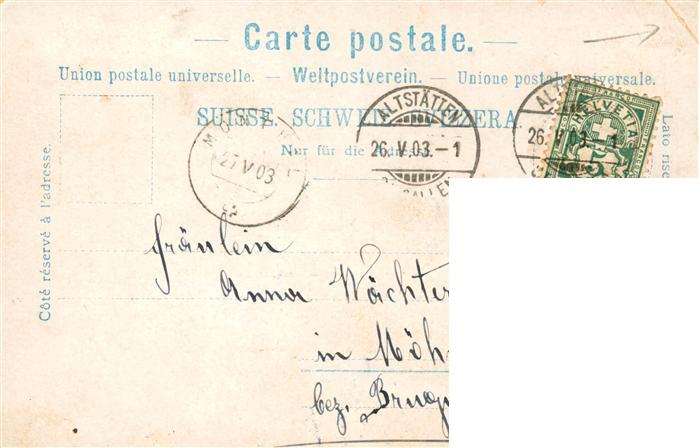 Carte postale.
Union postale universelle. — Weltpostverein. — Unione postale universale.
SUISSE. SCHWEIZ. SVIZZERA.
Nur für die Adresse.
Côté réservé à l'adresse.
Lato
ALTSTÄTTEN
26. V. 03. – 1
HELVETIA
5
26. V. 03. – 1
27 V 03
Fräulein
Anna Wächter
in
bez.